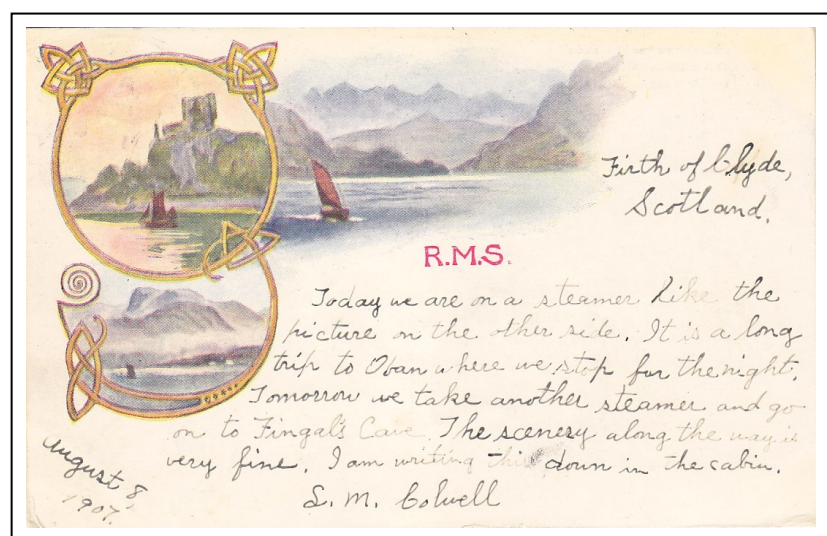 Firth of Clyde,
Scotland.
R.M.S.
Today we are on a steamer like the
picture on the other side. It is a long
trip to Oban where we stop for the night.
Tomorrow we take another steamer and go
on to Fingal's Cave. The scenery along the way is
very fine. I am writing this down in the cabin.
S. M. Colwell
August 8,
1907.